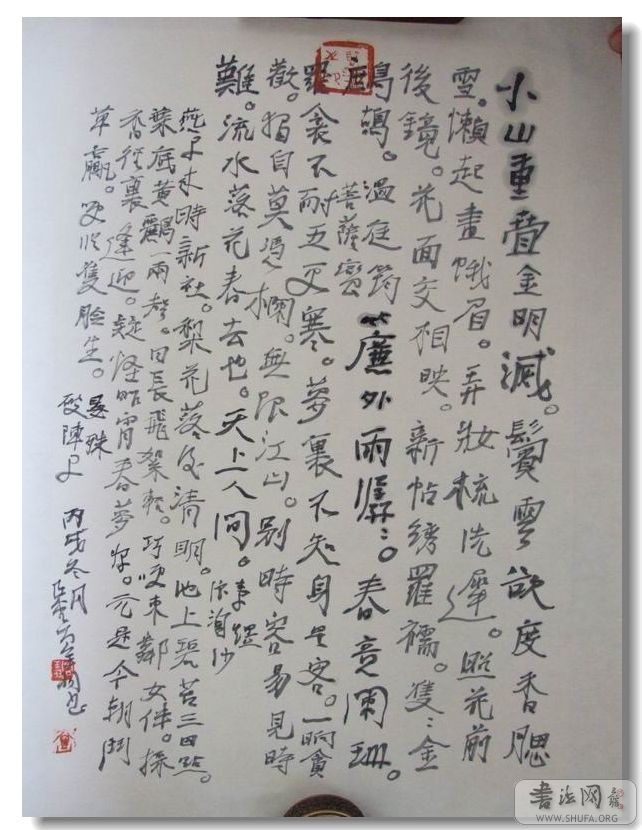 小山重疊金明滅。鬢雲欲度香腮
雪。懶起畫蛾眉。弄妝梳洗遲。照花前
後鏡。花面交相映。新帖綉羅襦。雙〻金
鷓鴣。溫庭筠
菩薩蠻
簾外雨潺〻。春意闌珊。
羅衾不耐五更寒。夢裏不知身是客。一晌貪
歡。獨自莫憑欄。無限江山。別時容易見時
難。流水落花春去也。天上人間。李煜
浪淘沙
燕子來時新社。梨花落後清明。池上碧苔三四點。
葉底黃鸝一兩聲。日長飛絮輕。巧咲東鄰女伴。採
香徑裏逢迎。疑怪昨宵春夢好。元是今朝鬥
草贏。咲從雙臉生。晏殊
破陣子
丙戌冬月
书法网
WWW.SHUFA.ORG